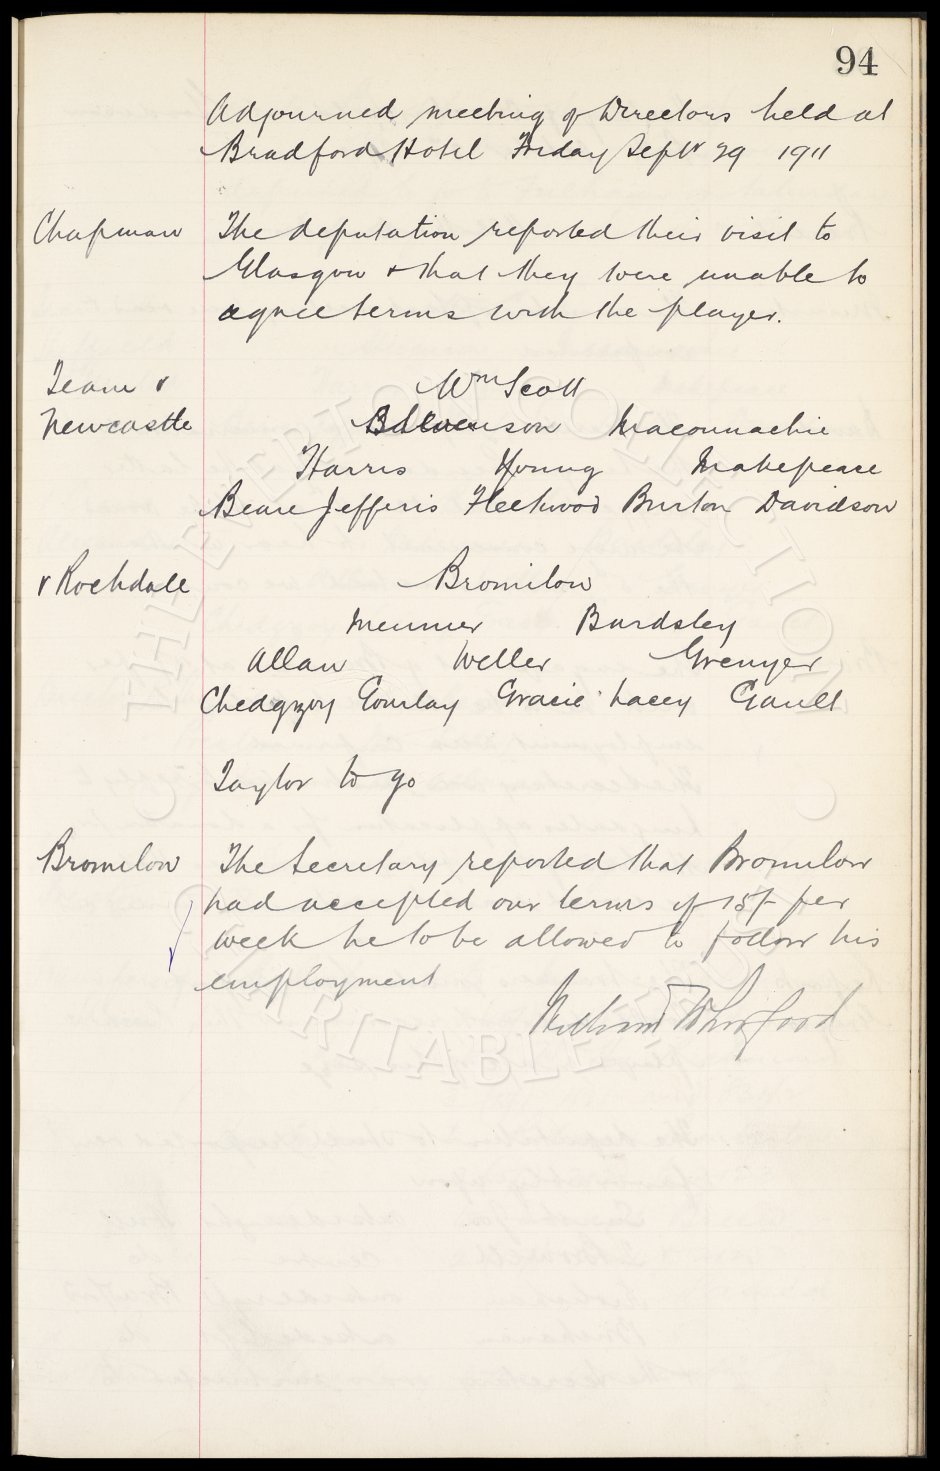 94
Adjourned meeting of Directors held at
Bradford Hotel Friday Septr 29 1911
Chapman The deputation reported their visit to
Glasgow & that they were unable to
agree terms with the player.
Team v Wm Scott
Newcastle Stevenson Maconnachie
Harris Young Makepeace
Beare Jefferis Fleetwood Burton Davidson
v Rochdale Bromilow
Meunier Bardsley
Allan Weller Grenyer
Chedgzoy Gourlay Gracie Lacey Gault
Taylor to go
Bromilow The Secretary reported that Bromilow
had accepted our terms of 15/- per
week he to be allowed to follow his
employment
William Whitford
THE EVERTON COLLECTION
CHARITABLE TRUST